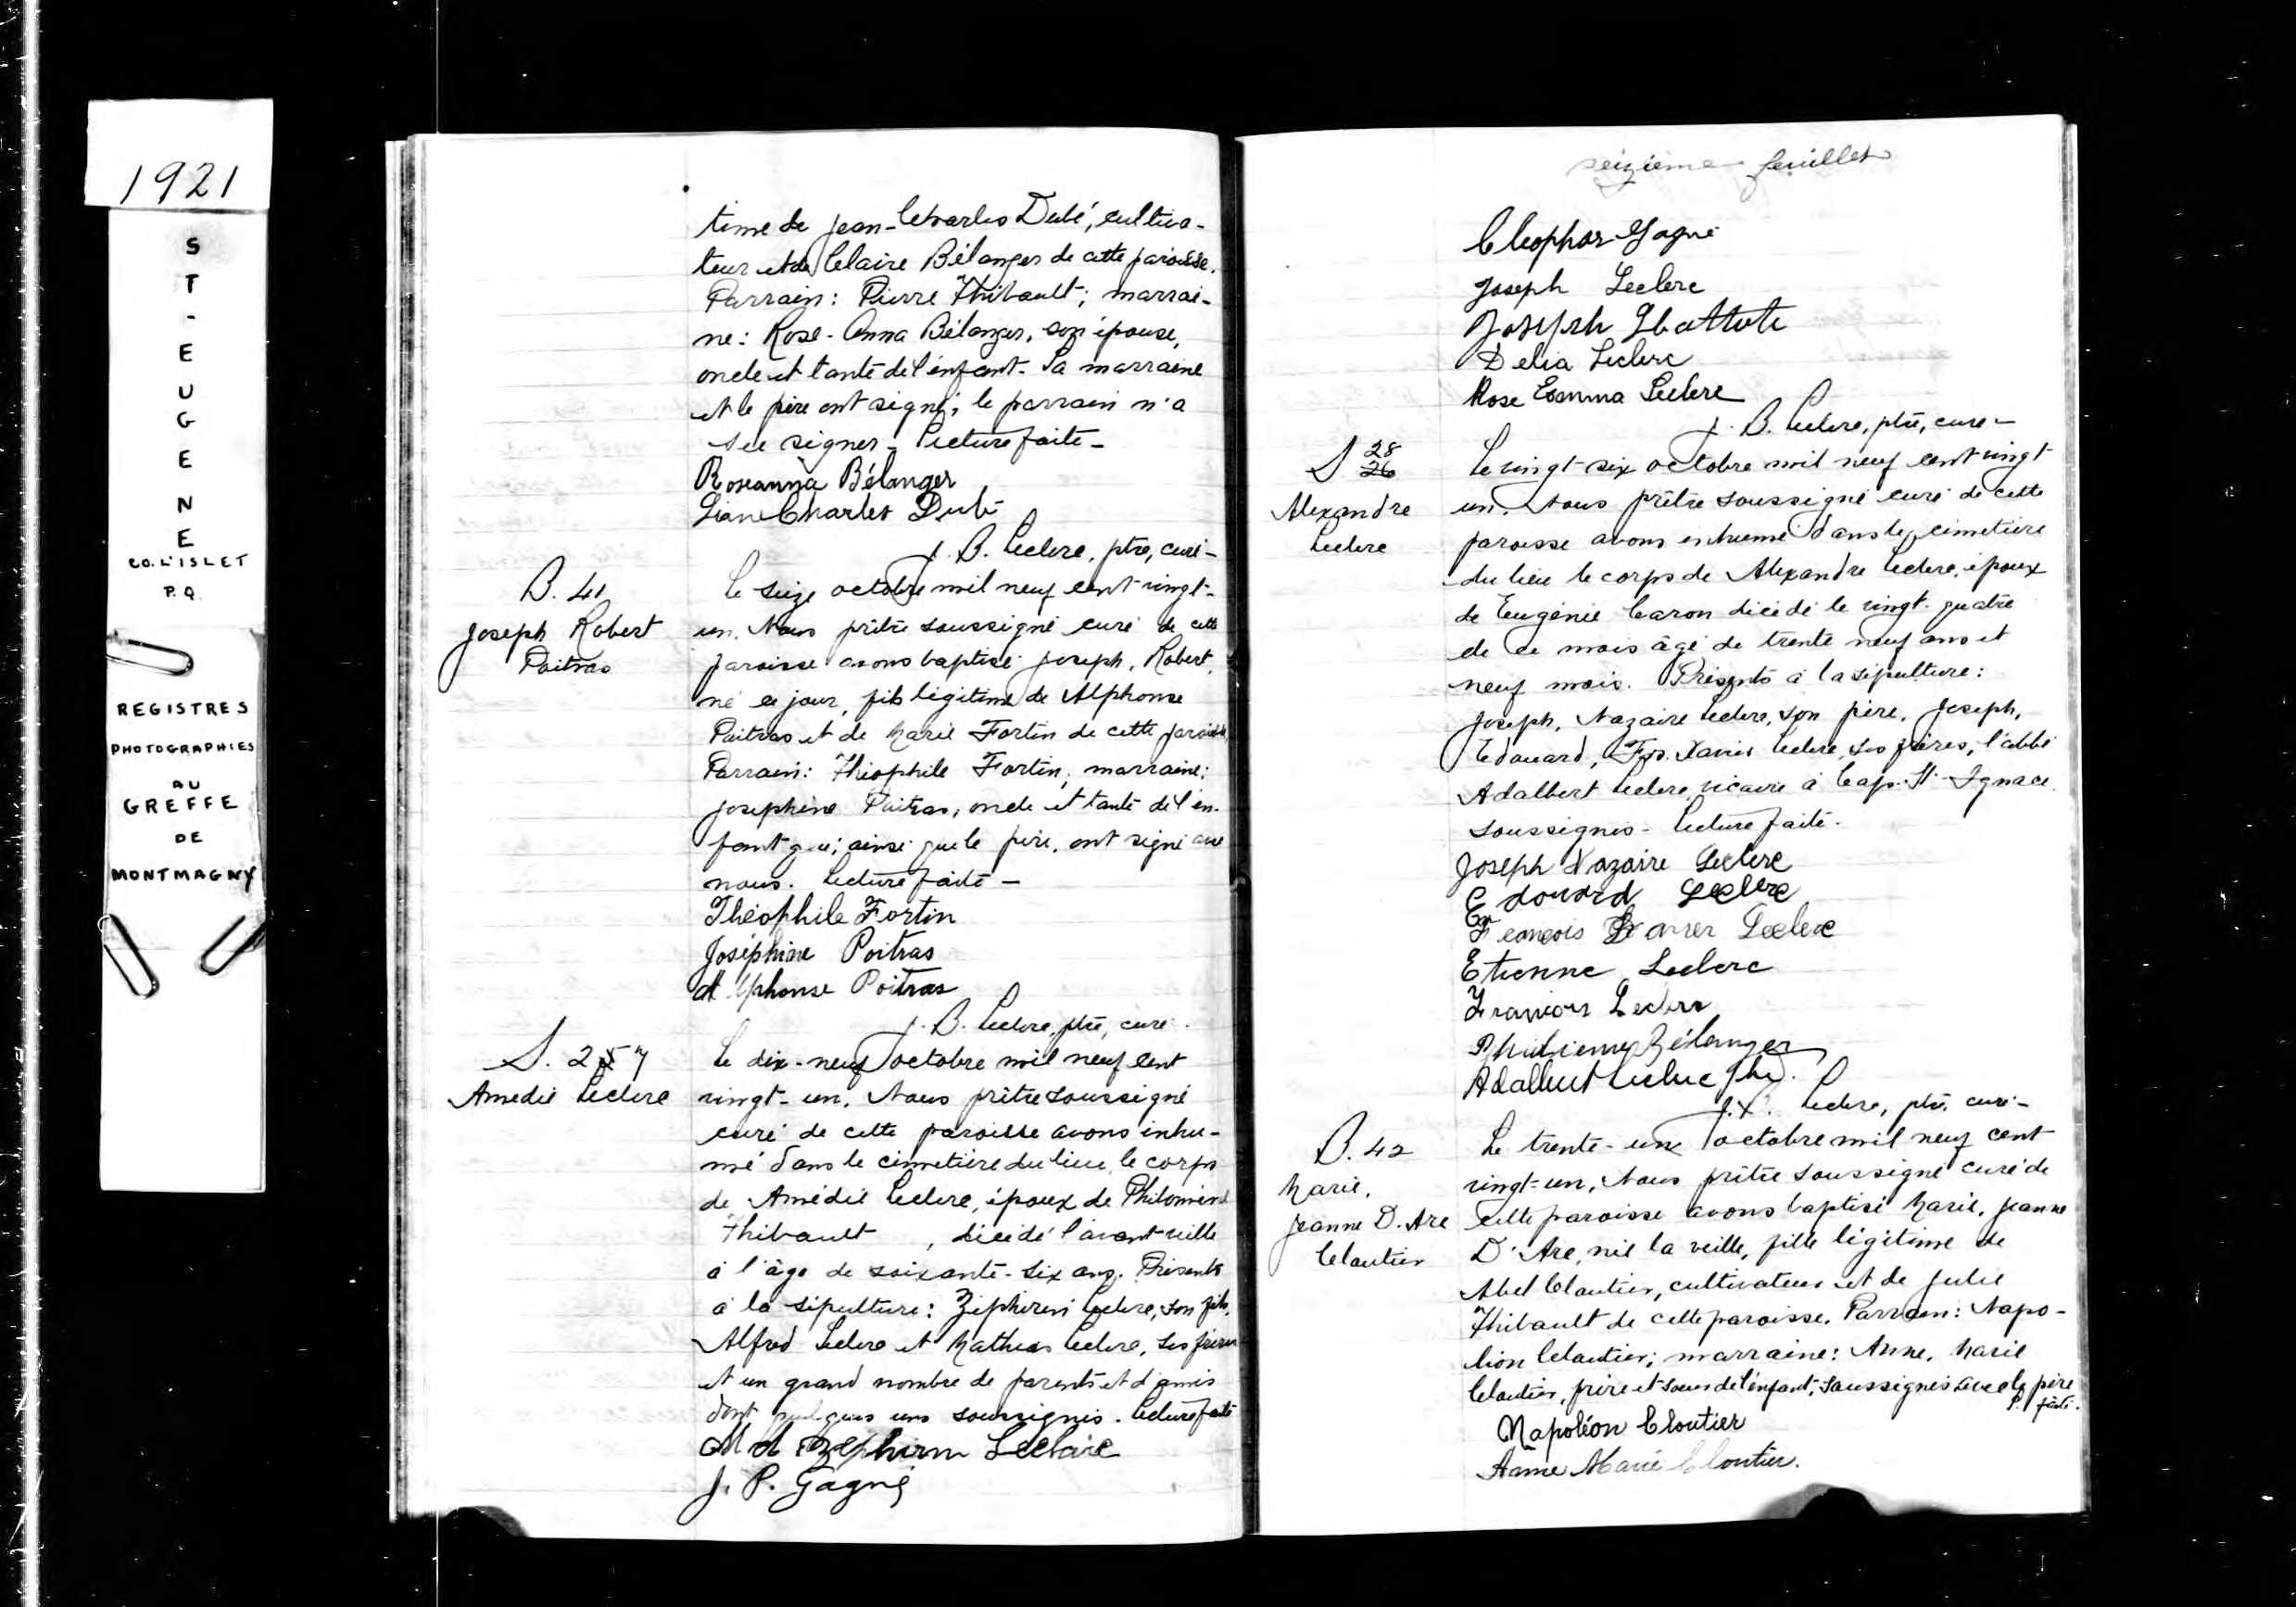 1921
S
T
-
E
U
G
E
N
E
CO. L'ISLET
P.Q.
REGISTRES
PHOTOGRAPHIES
AU
GREFFE
DE
MONTMAGNY
time de Jean-Charles Dubé, cultiva-
teur et de Claire Bélanger de cette paroisse.
Parrain: Pierre Thibault; marrai-
ne: Rose-Anna Bélanger, son épouse,
oncle et tante de l'enfant. La marraine
et le père ont signé; le parrain n'a
su signer - Lecture faite -
Roseanna Bélanger
Charles Dubé
J. B. Leclerc, ptre, curé -
B. 41
Joseph Robert
Poitras
Le seize octobre mil neuf cent vingt-
un. Nous prêtre soussigné curé de cette
paroisse avons baptisé Joseph, Robert,
né ce jour, fils légitime de Alphonse
Poitras et de Marie Fortin de cette paroisse.
Parrain: Théophile Fortin; marraine:
Joséphine Poitras, oncle et tante de l'en-
fant qui, ainsi que le père, ont signé avec
nous. Lecture faite -
Théophile Fortin
Joséphine Poitras
Alphonse Poitras
J. B. Leclerc, ptre, curé.
S. 257
Amédée Leclerc
Le dix-neuf octobre mil neuf cent
vingt-un. Nous prêtre soussigné
curé de cette paroisse avons inhu-
mé dans le cimetière du lieu, le corps
de Amédée Leclerc, époux de Philomène
Thibault, décédé l'avant-veille
à l'âge de soixante-six ans. Présents
à la sépulture: Zéphirin Leclerc, son fils,
Alfred Leclerc et Mathias Leclerc, ses frères
et un grand nombre de parents et d'amis
dont quelques uns soussignés. Lecture faite
Zephirin Leclaire
J. P. Gagné
seizième feuillet
Cléophas Gagné
Joseph Leclerc
Joseph
Delia Leclerc
Rose Emma Leclerc
J. B. Leclerc, ptre, curé -
S 28
26
Alexandre
Leclerc
Le vingt-six octobre mil neuf cent vingt
un. Nous prêtre soussigné curé de cette
paroisse avons inhumé dans le cimetière
du lieu le corps de Alexandre Leclerc, époux
de Eugénie Caron décédé le vingt-quatre
de ce mois âgé de trente neuf ans et
neuf mois. Présents à la sépulture:
Joseph, Nazaire Leclerc, son père, Joseph,
Edouard, Frs. Xavier Leclerc, ses frères; l'abbé
Adalbert Leclerc, vicaire à Cap-St-Ignace
soussignés - Lecture faite.
Joseph Nazaire Leclerc
Edouard Leclerc
François Xavier Leclerc
Etienne Leclerc
François Leclerc
Bélanger
Adalbert Leclerc ptre.
J. B. Leclerc, ptre, curé -
B. 42
Marie,
Jeanne D. Arc
Cloutier
Le trente-un octobre mil neuf cent
vingt-un, Nous prêtre soussigné curé de
cette paroisse avons baptisé Marie, Jeanne
D'Arc, née la veille, fille légitime de
Abel Cloutier, cultivateur et de Julie
Thibault de cette paroisse. Parrain: Napo-
léon Cloutier; marraine: Anne, Marie
Cloutier, frère et soeur de l'enfant, soussignés avec le père
L. faite.
Napoléon Cloutier
Anne Marie Cloutier.